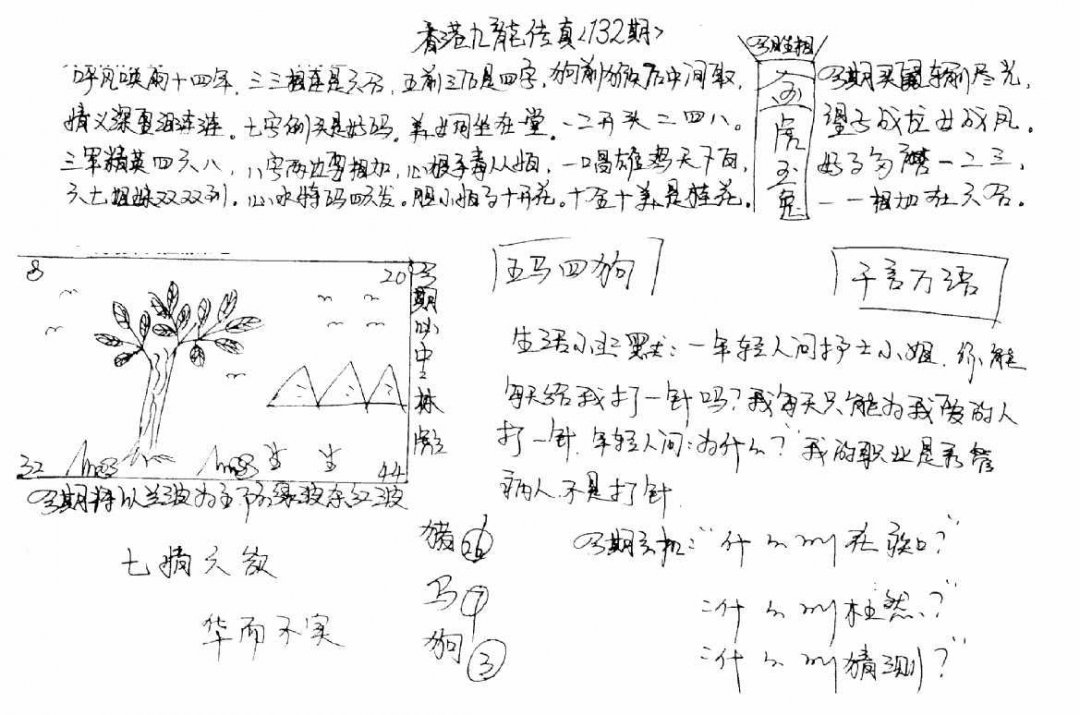 香港九龙传真<132期>
呼风唤雨十四年.三三相连是六合,五前三后是四字,狗前猴后中间取,
情义深重泪涟涟.七字例头是好码.美女网坐在堂.一二开头二四八。
三军精英四六八,八字两边要相加,心狠手毒从妇,一唱雄鸡天下白,
六七姐妹双双到.心水特码四天发.胆小怕子十开花.十五十美是桂花.
今期生相
六合虎玉兔
今期买鼠输尽光,
望子成龙女成凤.
好子多 一二三,
一一相加在六合.
8
20
32
44
今期必中
林
今期特以兰波为主下防绿波杀红波
五马四狗
千言万语
生活小幽默:一年轻人问护士小姐.你能
每天给我打一针吗?我每天只能为我爱的人
打一针.年轻人问:为什么?"我的职业是看管
病人.不是打针.
七情六欲
华而不实
猪 26
马 7
狗 3
今期玄机:"什么叫 在 口?"
:"什么叫枉然?"
:"什么叫猜测?"